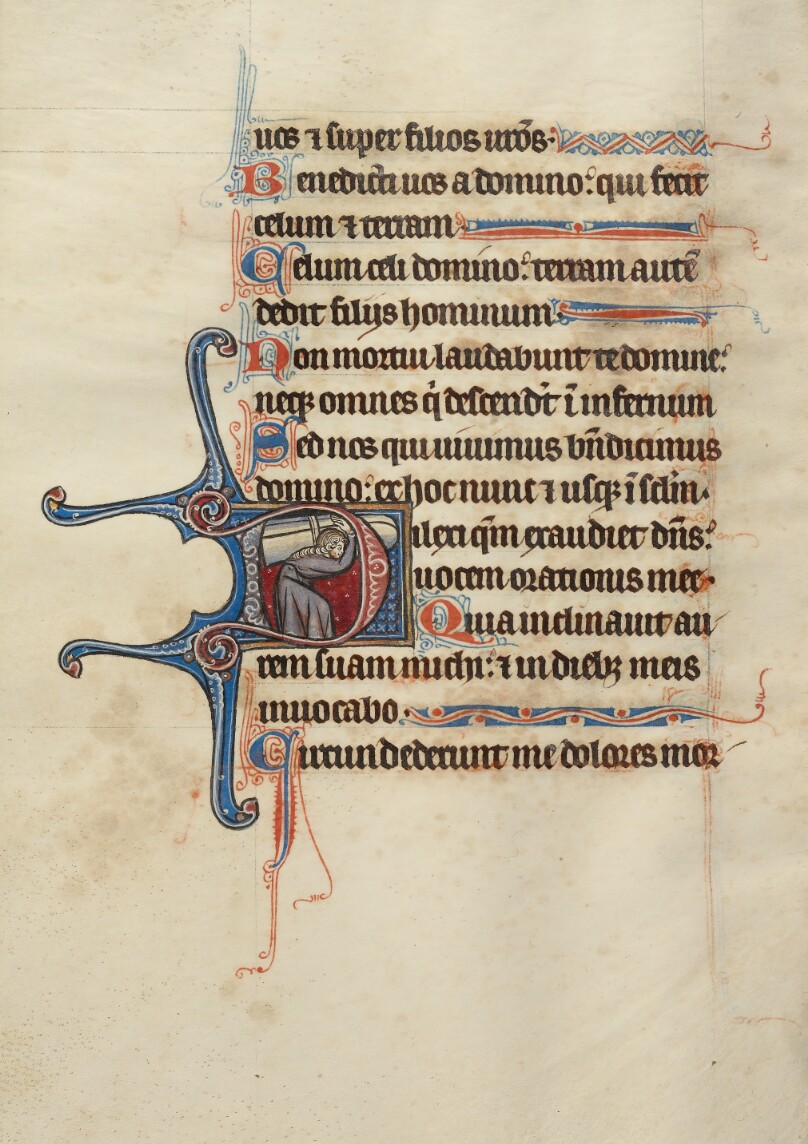 uos ⁊ super filios ur̄os.
Benedicti uos a domino: qui fecit
celum ⁊ terram.
Celum celi domino: terram autē
dedit filijs hominum.
Non mortui laudabunt te domine:
neqꝫ omnes q̇ descendūt ī infernum
Sed nos qui uiuimus bn̄dicimus
domino: ex hoc nunc ⁊ usqꝫ ī sc̄lm.
Dilexi qm̄ exaudiet dn̄s:
uocem orationis mee.
Quia inclinauit au
rem suam michi: ⁊ in diebꝫ meis
inuocabo.
Circundederunt me dolores mor